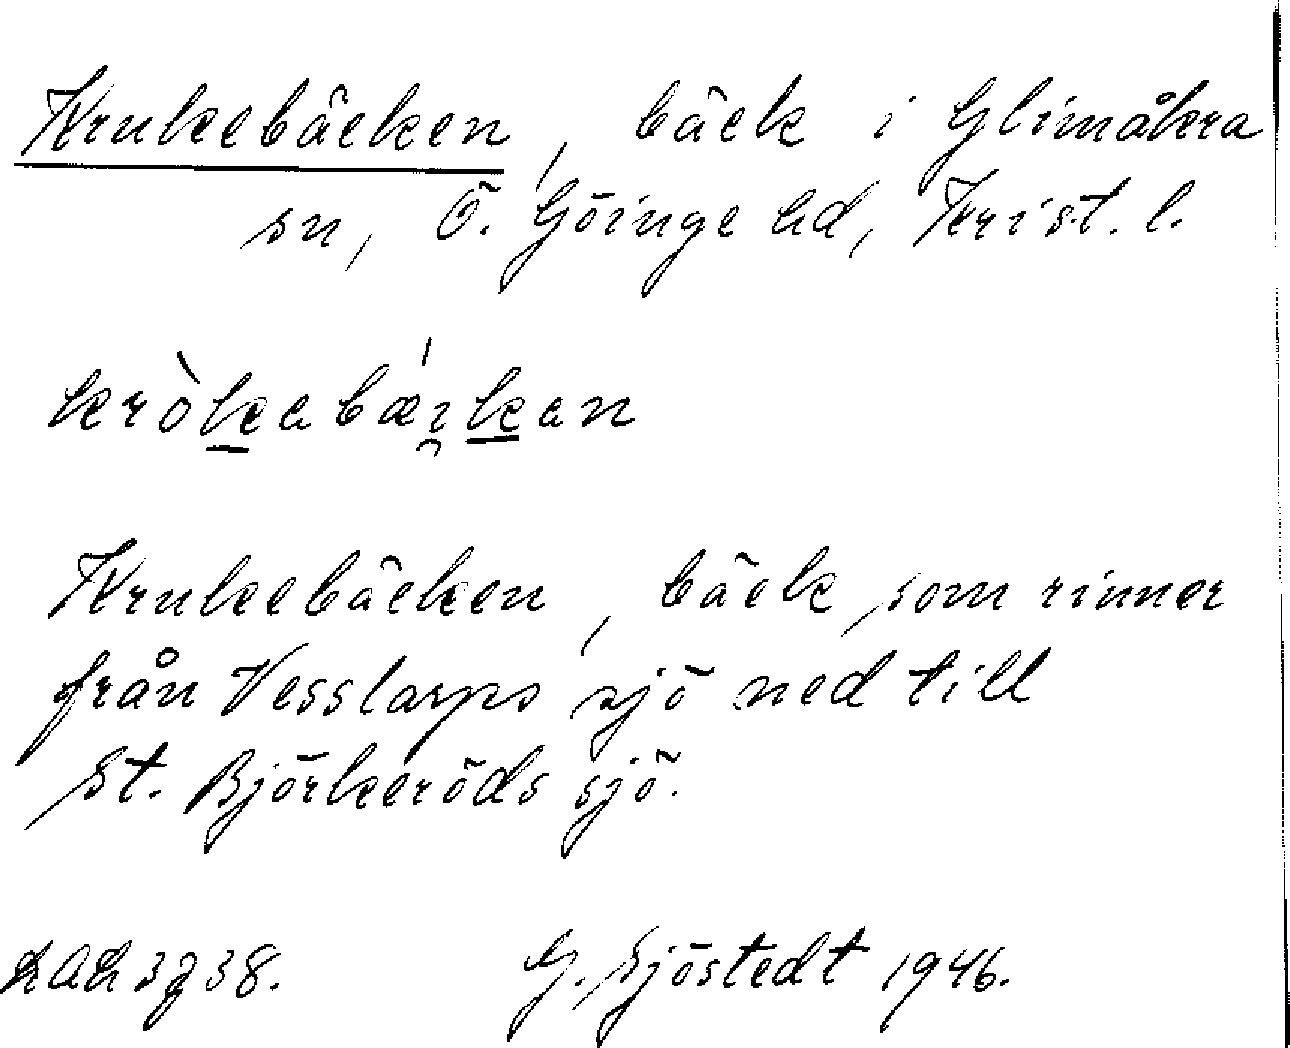 Krukebäcken, bäck i Glimåkra
sn, Ö. Göinge hd, Krist. l.
kròkabæ̀i̯kan
Krukebäcken, bäck som rinner
från Vesslarps sjö ned till
St. Björkeröds sjö.
G. Sjöstedt 1946.